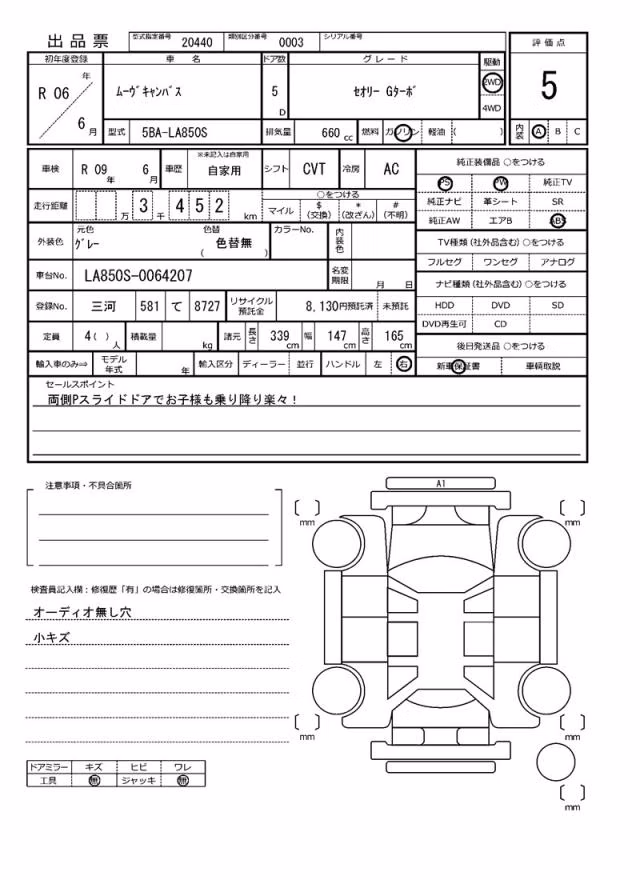 出品票
型式指定番号 20440 類別区分番号 0003 シリアル番号
初年度登録 車名 ドア数 グレード 駆動 評価点
R 06 年 6 月 ムーヴキャンバス 5 D セオリー Gターボ 2WD 4WD 5
型式 5BA-LA850S 排気量 660 cc 燃料 ガソリン 軽油 ( ) 内装 A B C
車検 R 09 年 6 月 車歴 ※未記入は自家用 自家用 シフト CVT 冷房 AC
走行距離 万 3 千 4 5 2 km ○をつける マイル $ (交換) * (改ざん) # (不明)
外装色 元色 グレー 色替 色替無 ( ) カラーNo. 内装色
車台No. LA850S-0064207 名変期限 月 日
登録No. 三河 581 て 8727 リサイクル預託金 8,130円預託済 未預託
定員 4( ) 人 積載量 kg 諸元 長さ 339 cm 幅 147 cm 高さ 165 cm
輸入車のみ⇒ モデル年式 年 輸入区分 ディーラー 並行 ハンドル 左 右
純正装備品 ○をつける
PS PW 純正TV
純正ナビ 革シート SR
純正AW エアB ABS
TV種類 (社外品含む) ○をつける
フルセグ ワンセグ アナログ
ナビ種類 (社外品含む) ○をつける
HDD DVD SD
DVD再生可 CD
後日発送品 ○をつける
新車保証書 車輌取説
セールスポイント
両側Pスライドドアでお子様も乗り降り楽々!
注意事項・不具合箇所
検査員記入欄:修復歴「有」の場合は修復箇所・交換箇所を記入
オーディオ無し穴
小キズ
ドアミラー キズ ヒビ ワレ
工具 無 ジャッキ 無
A1
mm mm
mm mm
mm